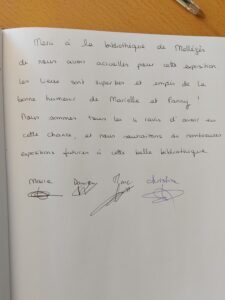 Merci à la bibliothèque de Mollégès
de nous avoir accueilles pour cette exposition
les lieux sont superbes et emplis de la
bonne humeur de Marcelle et Fanny !
Nous sommes tous les 4 ravis d'avoir eu
cette chance, et nous souhaitons de nombreuses
expositions futures à cette belle bibliothèque.
Marie